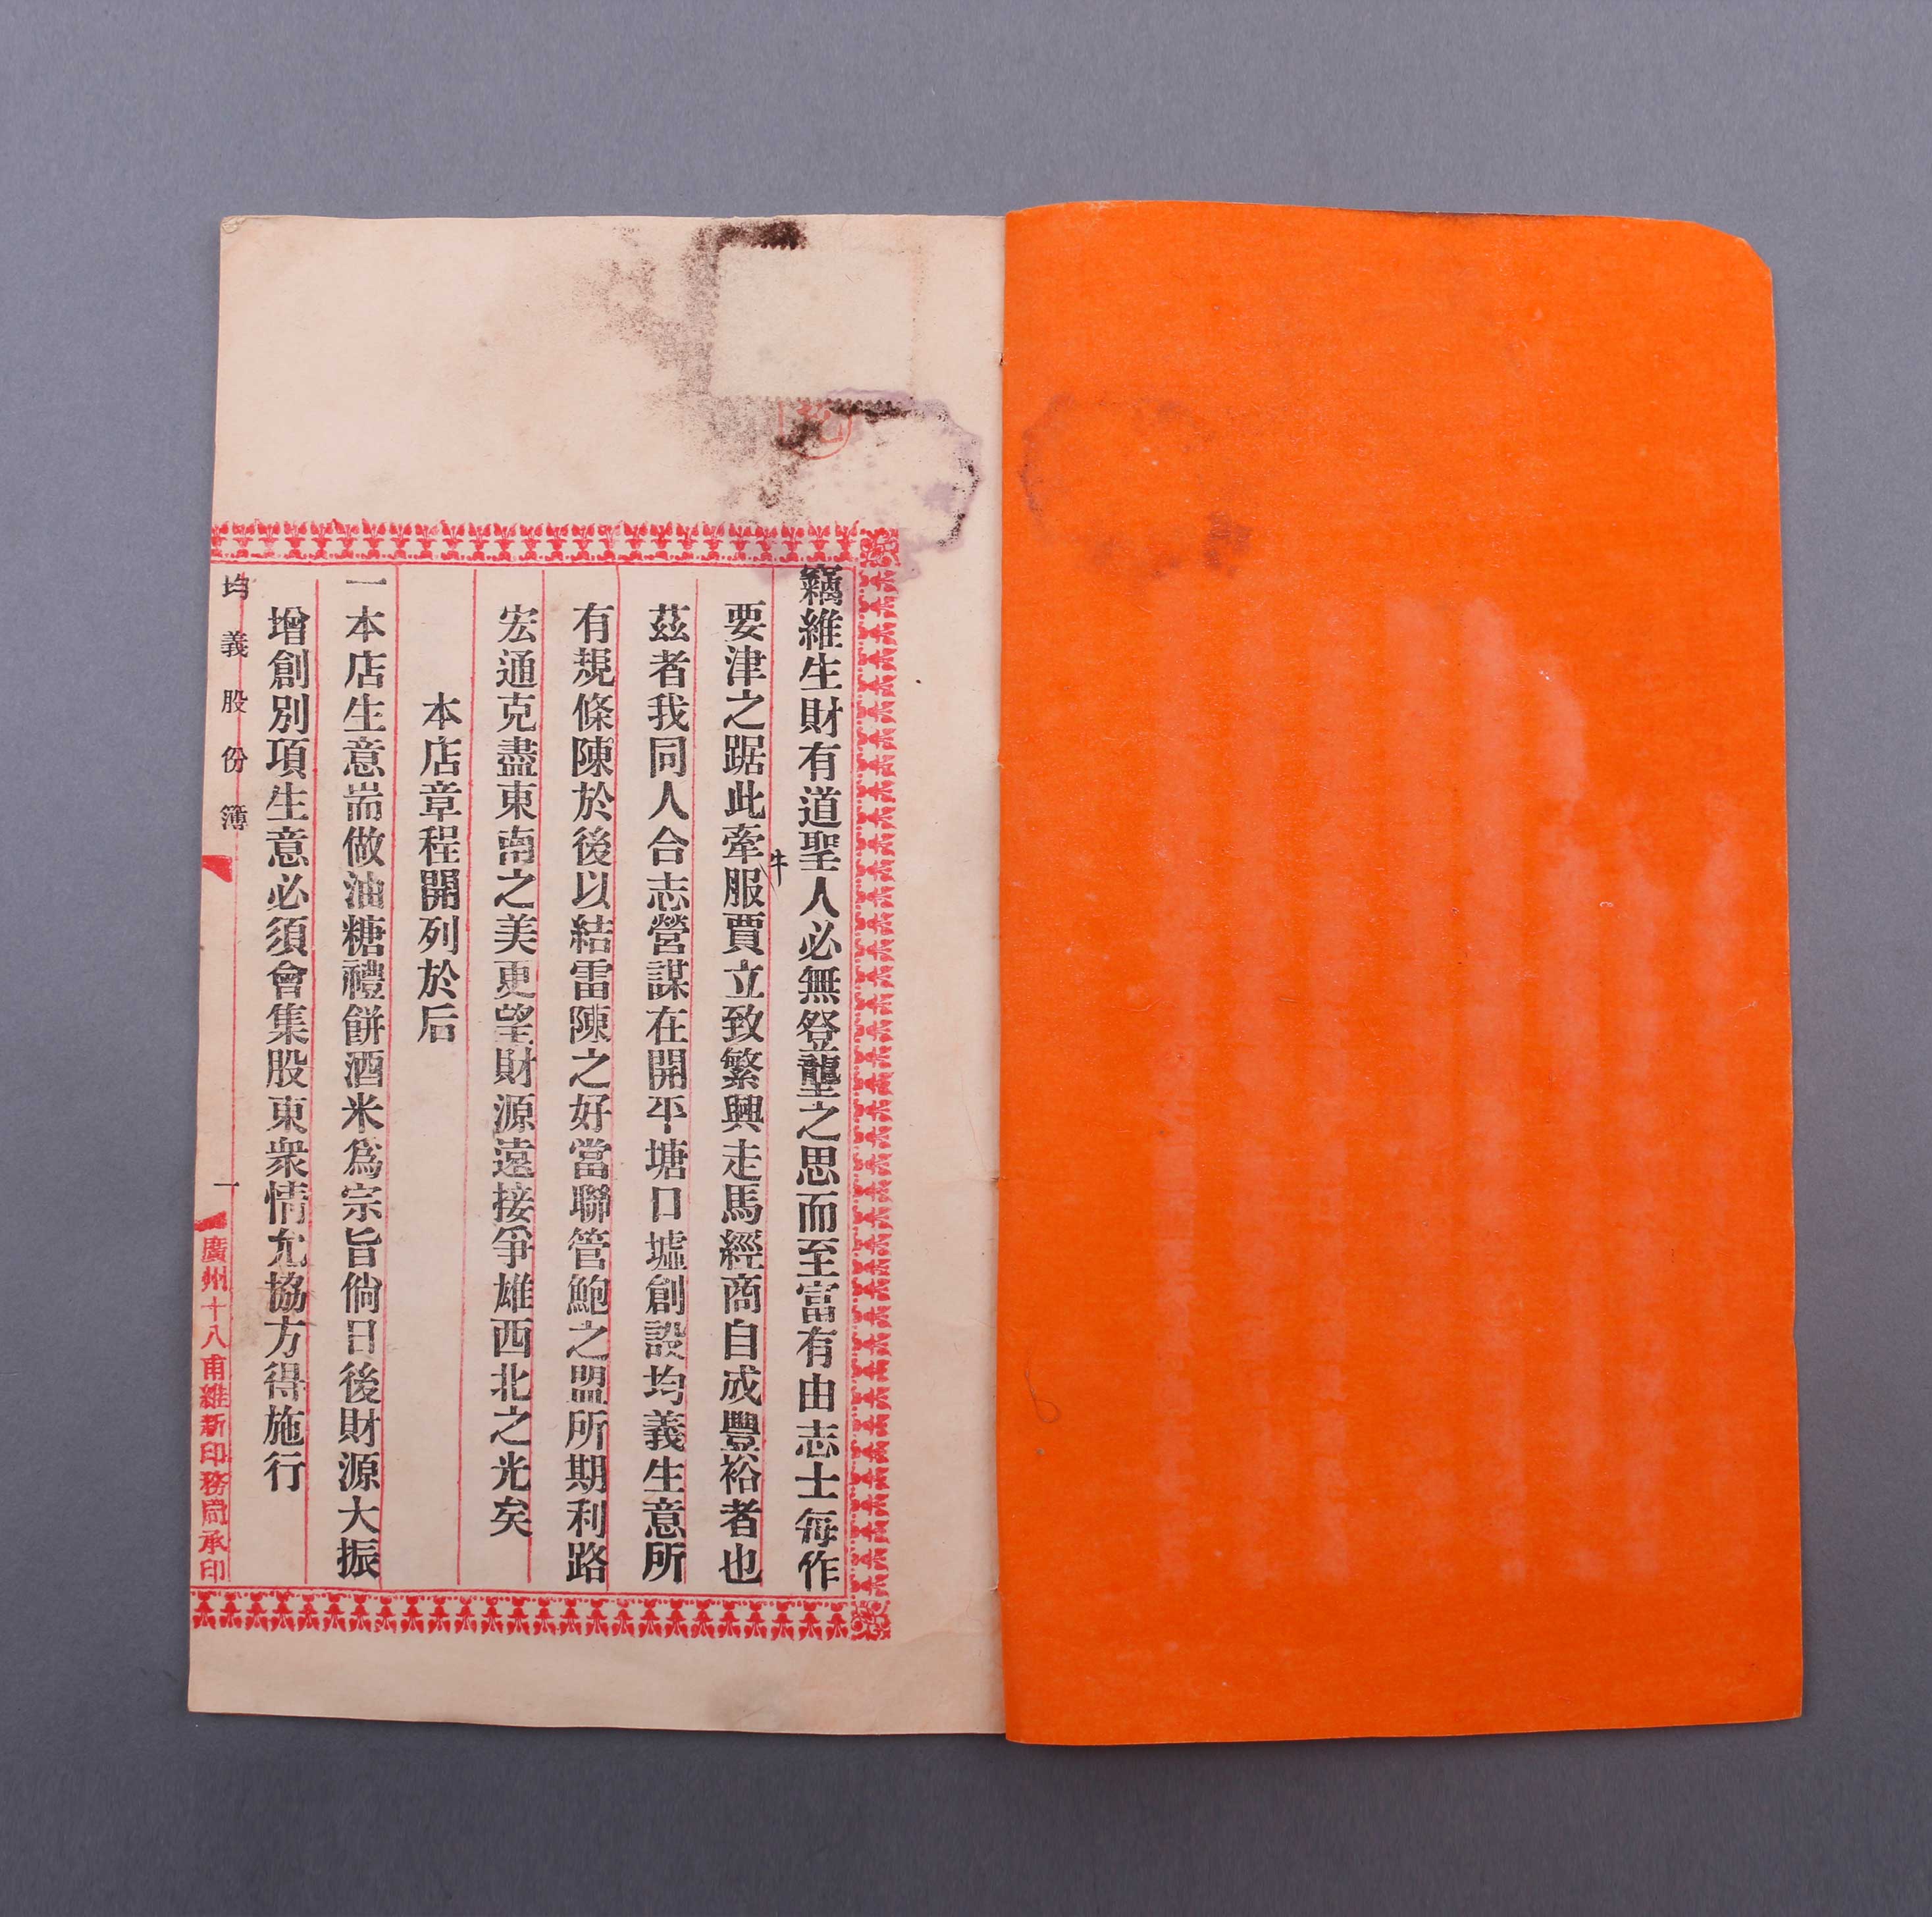 竊維生財有道聖人必無登壟之思而至富有由志士每作
要津之踞此牽服賈立致繁興走馬經商自成豐裕者也
牛
茲者我同人合志營謀在開平塘口墟創設均義生意所
有規條陳於後以結雷陳之好當聯管鮑之盟所期利路
宏通克盡東南之美更望財源遠接爭雄西北之光矣
本店章程開列於后
一本店生意耑做油糖禮餅酒米為宗旨倘日後財源大振
增創別項生意必須會集股東衆情允協方得施行
均義股份簿
一
廣州十八甫維新印務局承印